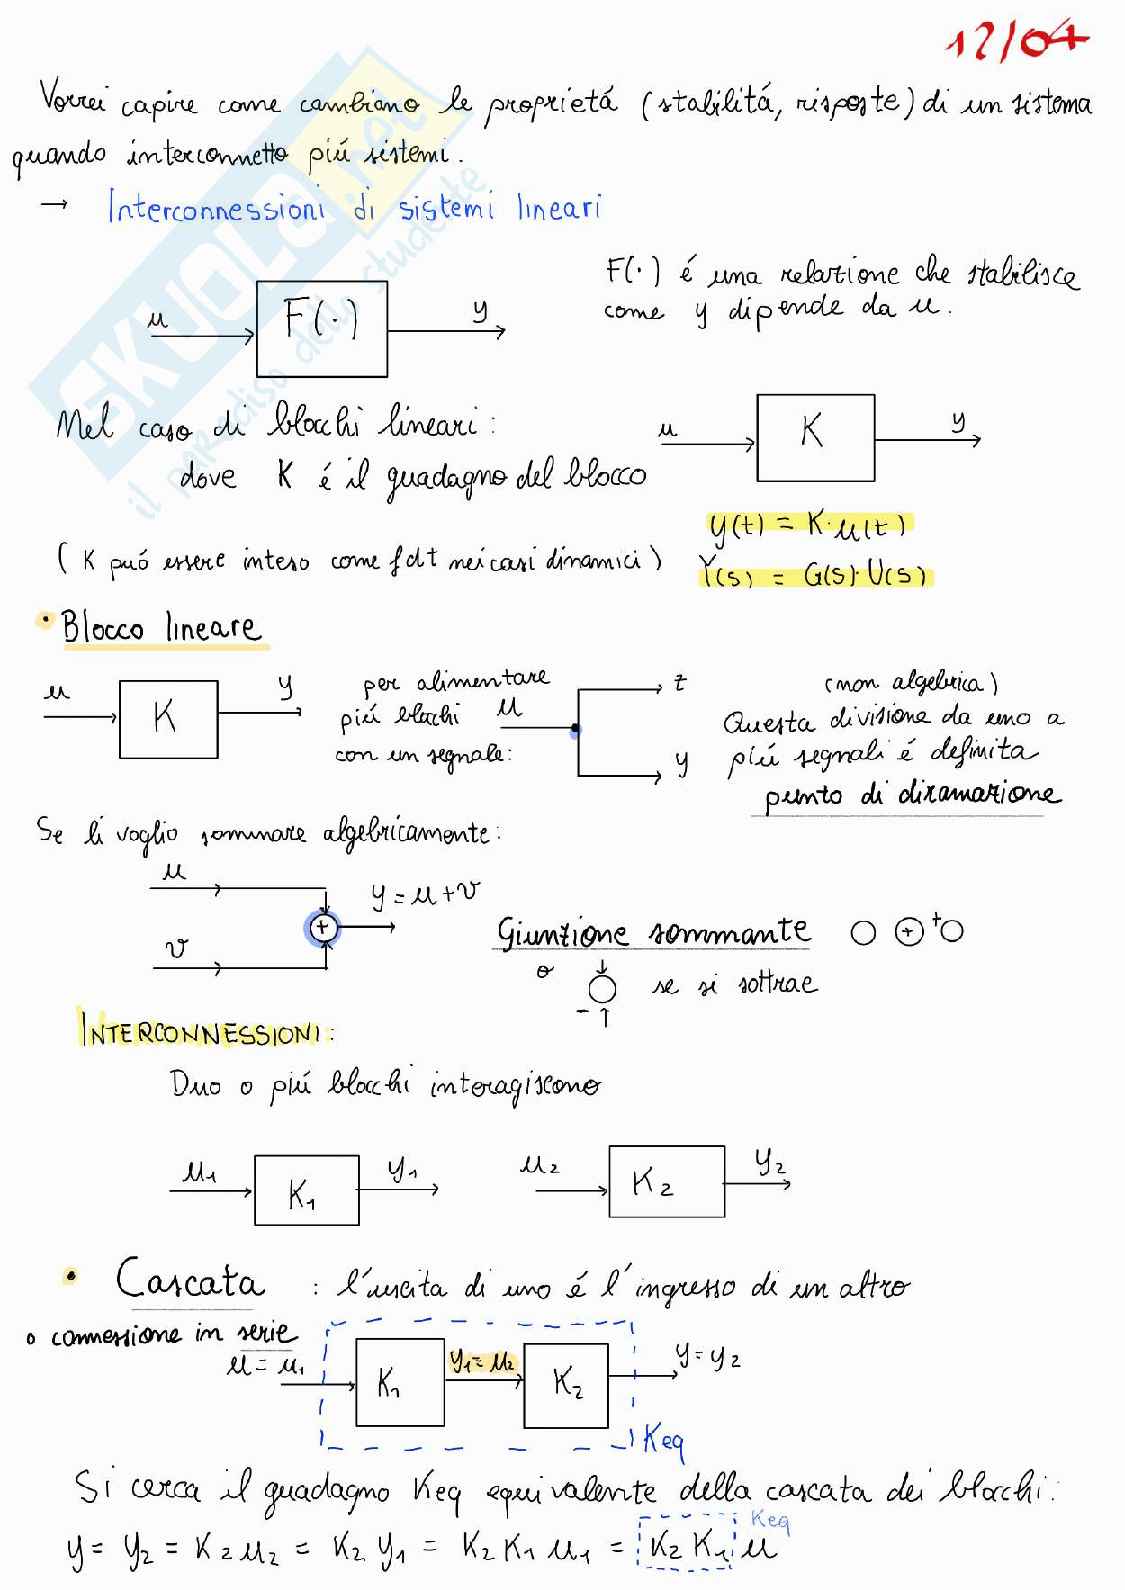 12/04
Vorrei capire come cambiano le proprietá (stabilitá, risposte) di un sistema
quando interconnetto piú sistemi.
→ Interconnessioni di sistemi lineari
F(·) é una relazione che stabilisce
come y dipende da u.
u F(·) y
Nel caso di blocchi lineari:
u K y
dove K é il guadagno del blocco
y(t) = K·u(t)
(K puó essere inteso come fdt nei casi dinamici)
Y(s) = G(s)·U(s)
• Blocco lineare
u K y
per alimentare
piú blocchi
con un segnale:
u z y
(non algebrica)
Questa divisione da uno a
piú segnali é definita
punto di diramazione
Se li voglio sommare algebricamente:
u
v
+
y = u + v
Giunzione sommante + +
o - se si sottrae
INTERCONNESSIONI:
Duo o piú blocchi interagiscono
u1 K1 y1 u2 K2 y2
• Cascata : l'uscita di uno é l'ingresso di un altro
o connessione in serie
u = u1 K1 y1 = u2 K2 y = y2
Keq
Si cerca il guadagno Keq equivalente della cascata dei blocchi:
Keq
y = y2 = K2 u2 = K2 y1 = K2 K1 u1 = K2 K1 u
SKUOLA.net
il paradiso dello studente